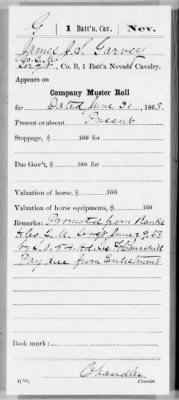 G | 1 Batt'n. Cav. | Nev.
James J. S. Garvey
Co. Q. M.
Sergt., Co. B, 1 Batt'n Nevada Cavalry.
Appears on
Company Muster Roll
for Dated June 30, 1863.
Present or absent Present
Stoppage, $ 100 for
Due Gov't, $ 100 for
Valuation of horse, $ 100
Valuation of horse equipments, $ 100
Remarks: Promoted from Ranks
to Co. Q. M. Sergt June 9, 63
by S.O. Churchill
Pay due from Enlistment
Book mark:
Chandler
Copyist.